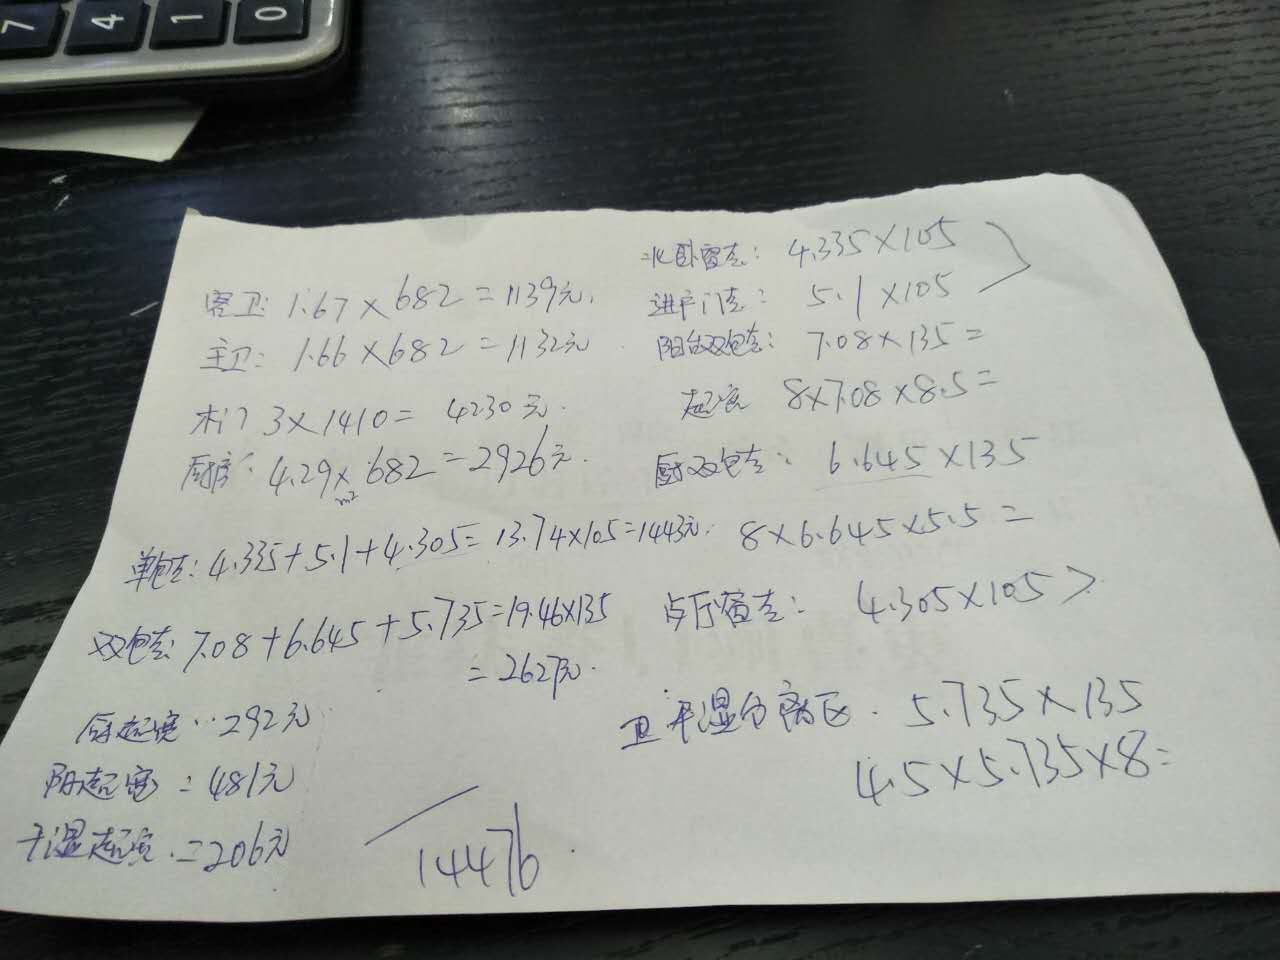 7 4 1 0
客卫: 1.67×682=1139元.
主卫: 1.66×682=1132元
木门 3×1410= 4230元.
厨房: 4.29×682=2926元.
m²
单包套: 4.335+5.1+4.305=13.74×105=1443元.
双包套: 7.08+6.645+5.735=19.46×135
=2627元.
厨超宽: 292元
阳超宽: 481元
干湿超宽.=206元
14476
北卧窗套: 4.335×105
进户门套: 5.1×105
阳台双包套: 7.08×135=
超宽 8×7.08×8.5=
厨双包套: 6.645×135
8×6.645×5.5=
窗套: 4.305×105
卫干湿分离区. 5.735×135
4.5×5.735×8=